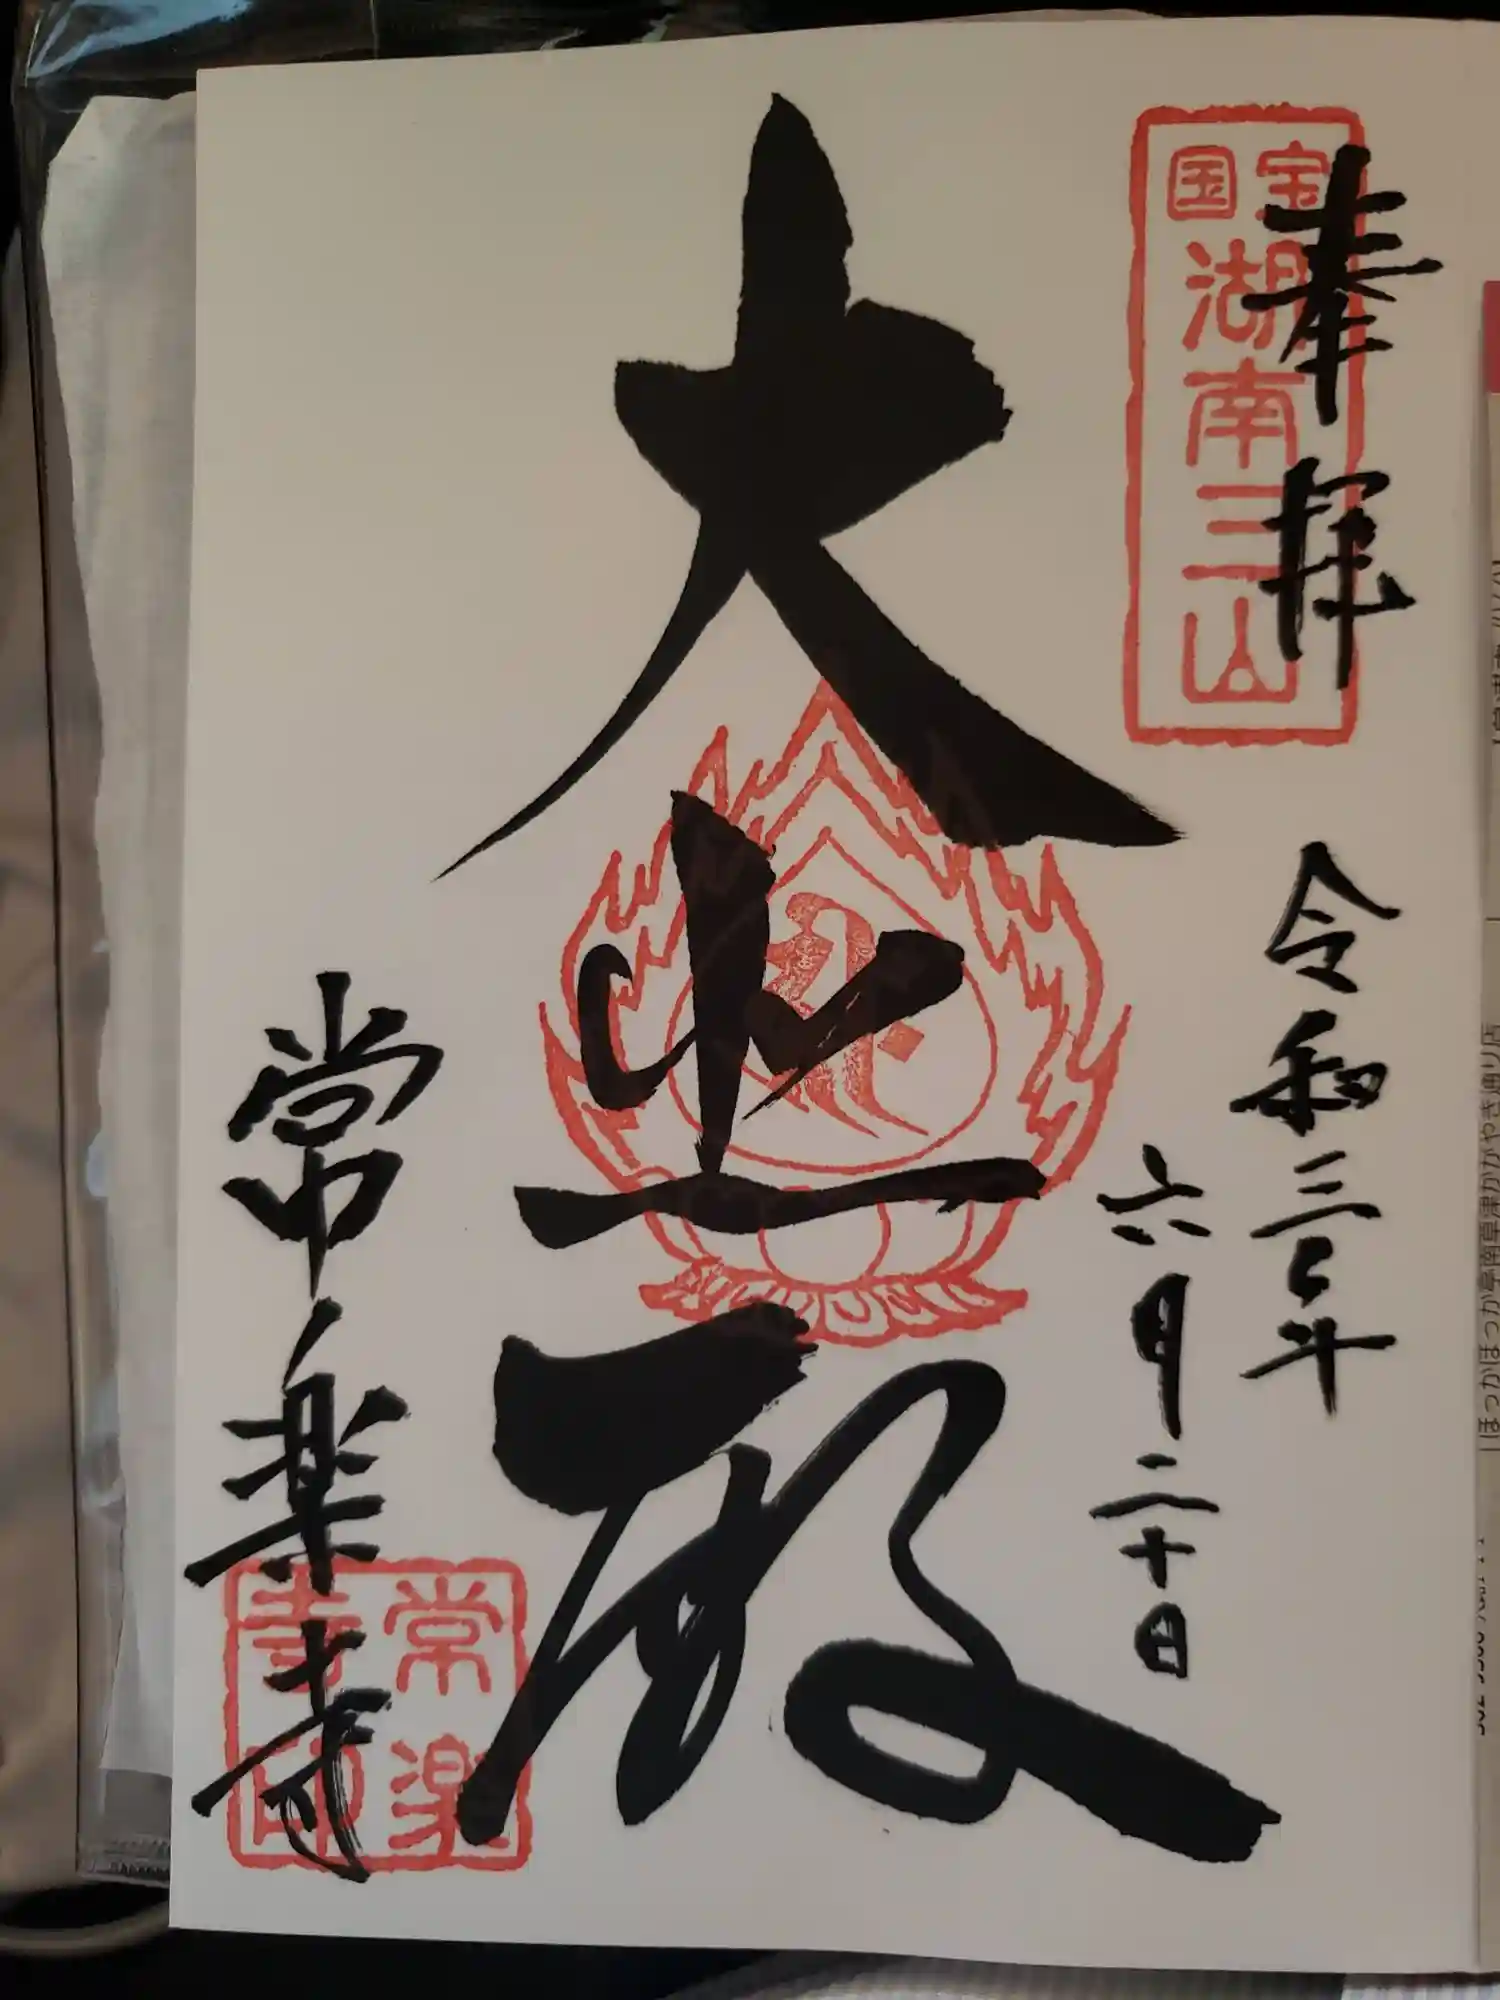 奉拝
国宝
湖南三山
令和三年
六月二十日
大悲殿
常楽寺
常楽
寺印
ほっかほっか亭南草津かがやき通り店